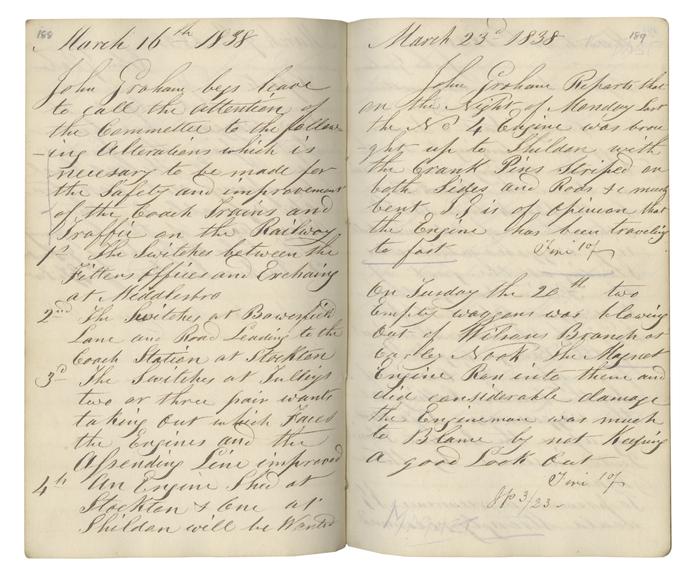 188
March 16th 1838
John Graham begs leave
to call the attention of
the Committee to the follow
-ing Alterations which is
necesary to be made for
the Safety and improvement
of the Coach Trains and
Traffic on the Railway
1st The Switches between the
Fitters Offices and Exchaing
at Middlesbro
2nd The Switches at Bowesfield
Lane and Road Leading to the
Coach Station at Stockton
3d The Switches at
two or three pair wants
taking out which Faces
the Engines and the
Assending Line improved
4th An Engine Shed at
Stockton & One at
Shildon will be Wanted
189
March 23d 1838
John Graham Reports that
on the Night of Monday Last
the No 4 Engine was brou
-ght up to Shildon with
the Crank Pins Striped on
both Sides and Rods &c much
bent J G is of opinion that
the Engine has been traveling
to fast Fine 10/
On Tusday the 20th two
Empty waggons was blowing
Out of Wilsons Branch at
Earley Nook The Magnet
Engine Ran into them and
did considerable damage
the Engineman was much
to Blame by not Keeping
a good Look Out
Fine 10/
3/23